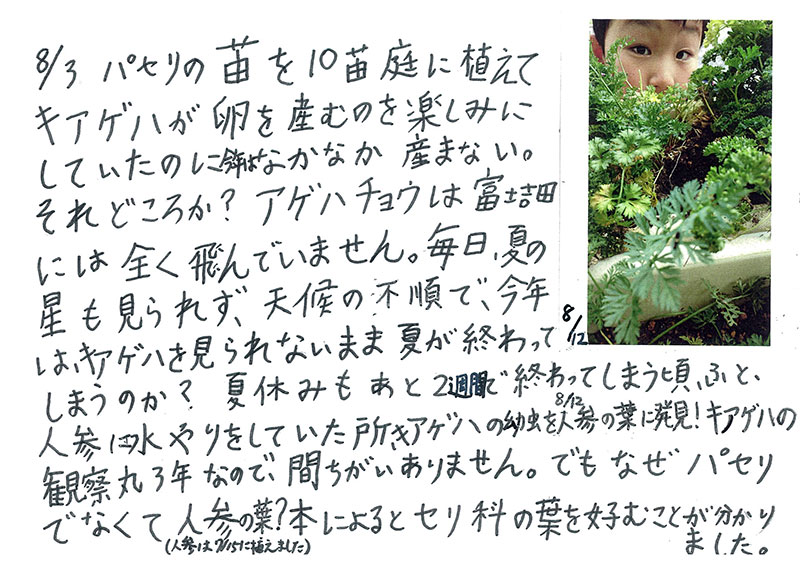 8/3 パセリの苗を10苗庭に植えて
キアゲハが卵を産むのを楽しみに
していたのになかなか産まない。
それどころか?アゲハチョウは富士吉田
には全く飛んでいません。毎日、夏の
星も見られず、天候の不順で、今年
は、キアゲハを見られないまま夏が終わって
しまうのか?夏休みもあと2週間で終わってしまう頃、ふと、
人参に水やりをしていた所、キアゲハの幼虫を人参の葉に発見!キアゲハの
観察丸3年なので、間ちがいありません。でもなぜパセリ
でなくて人参の葉?本によるとセリ科の葉を好むことが分かり
ました。
(人参は7/15に植えました)
8/12
8/12